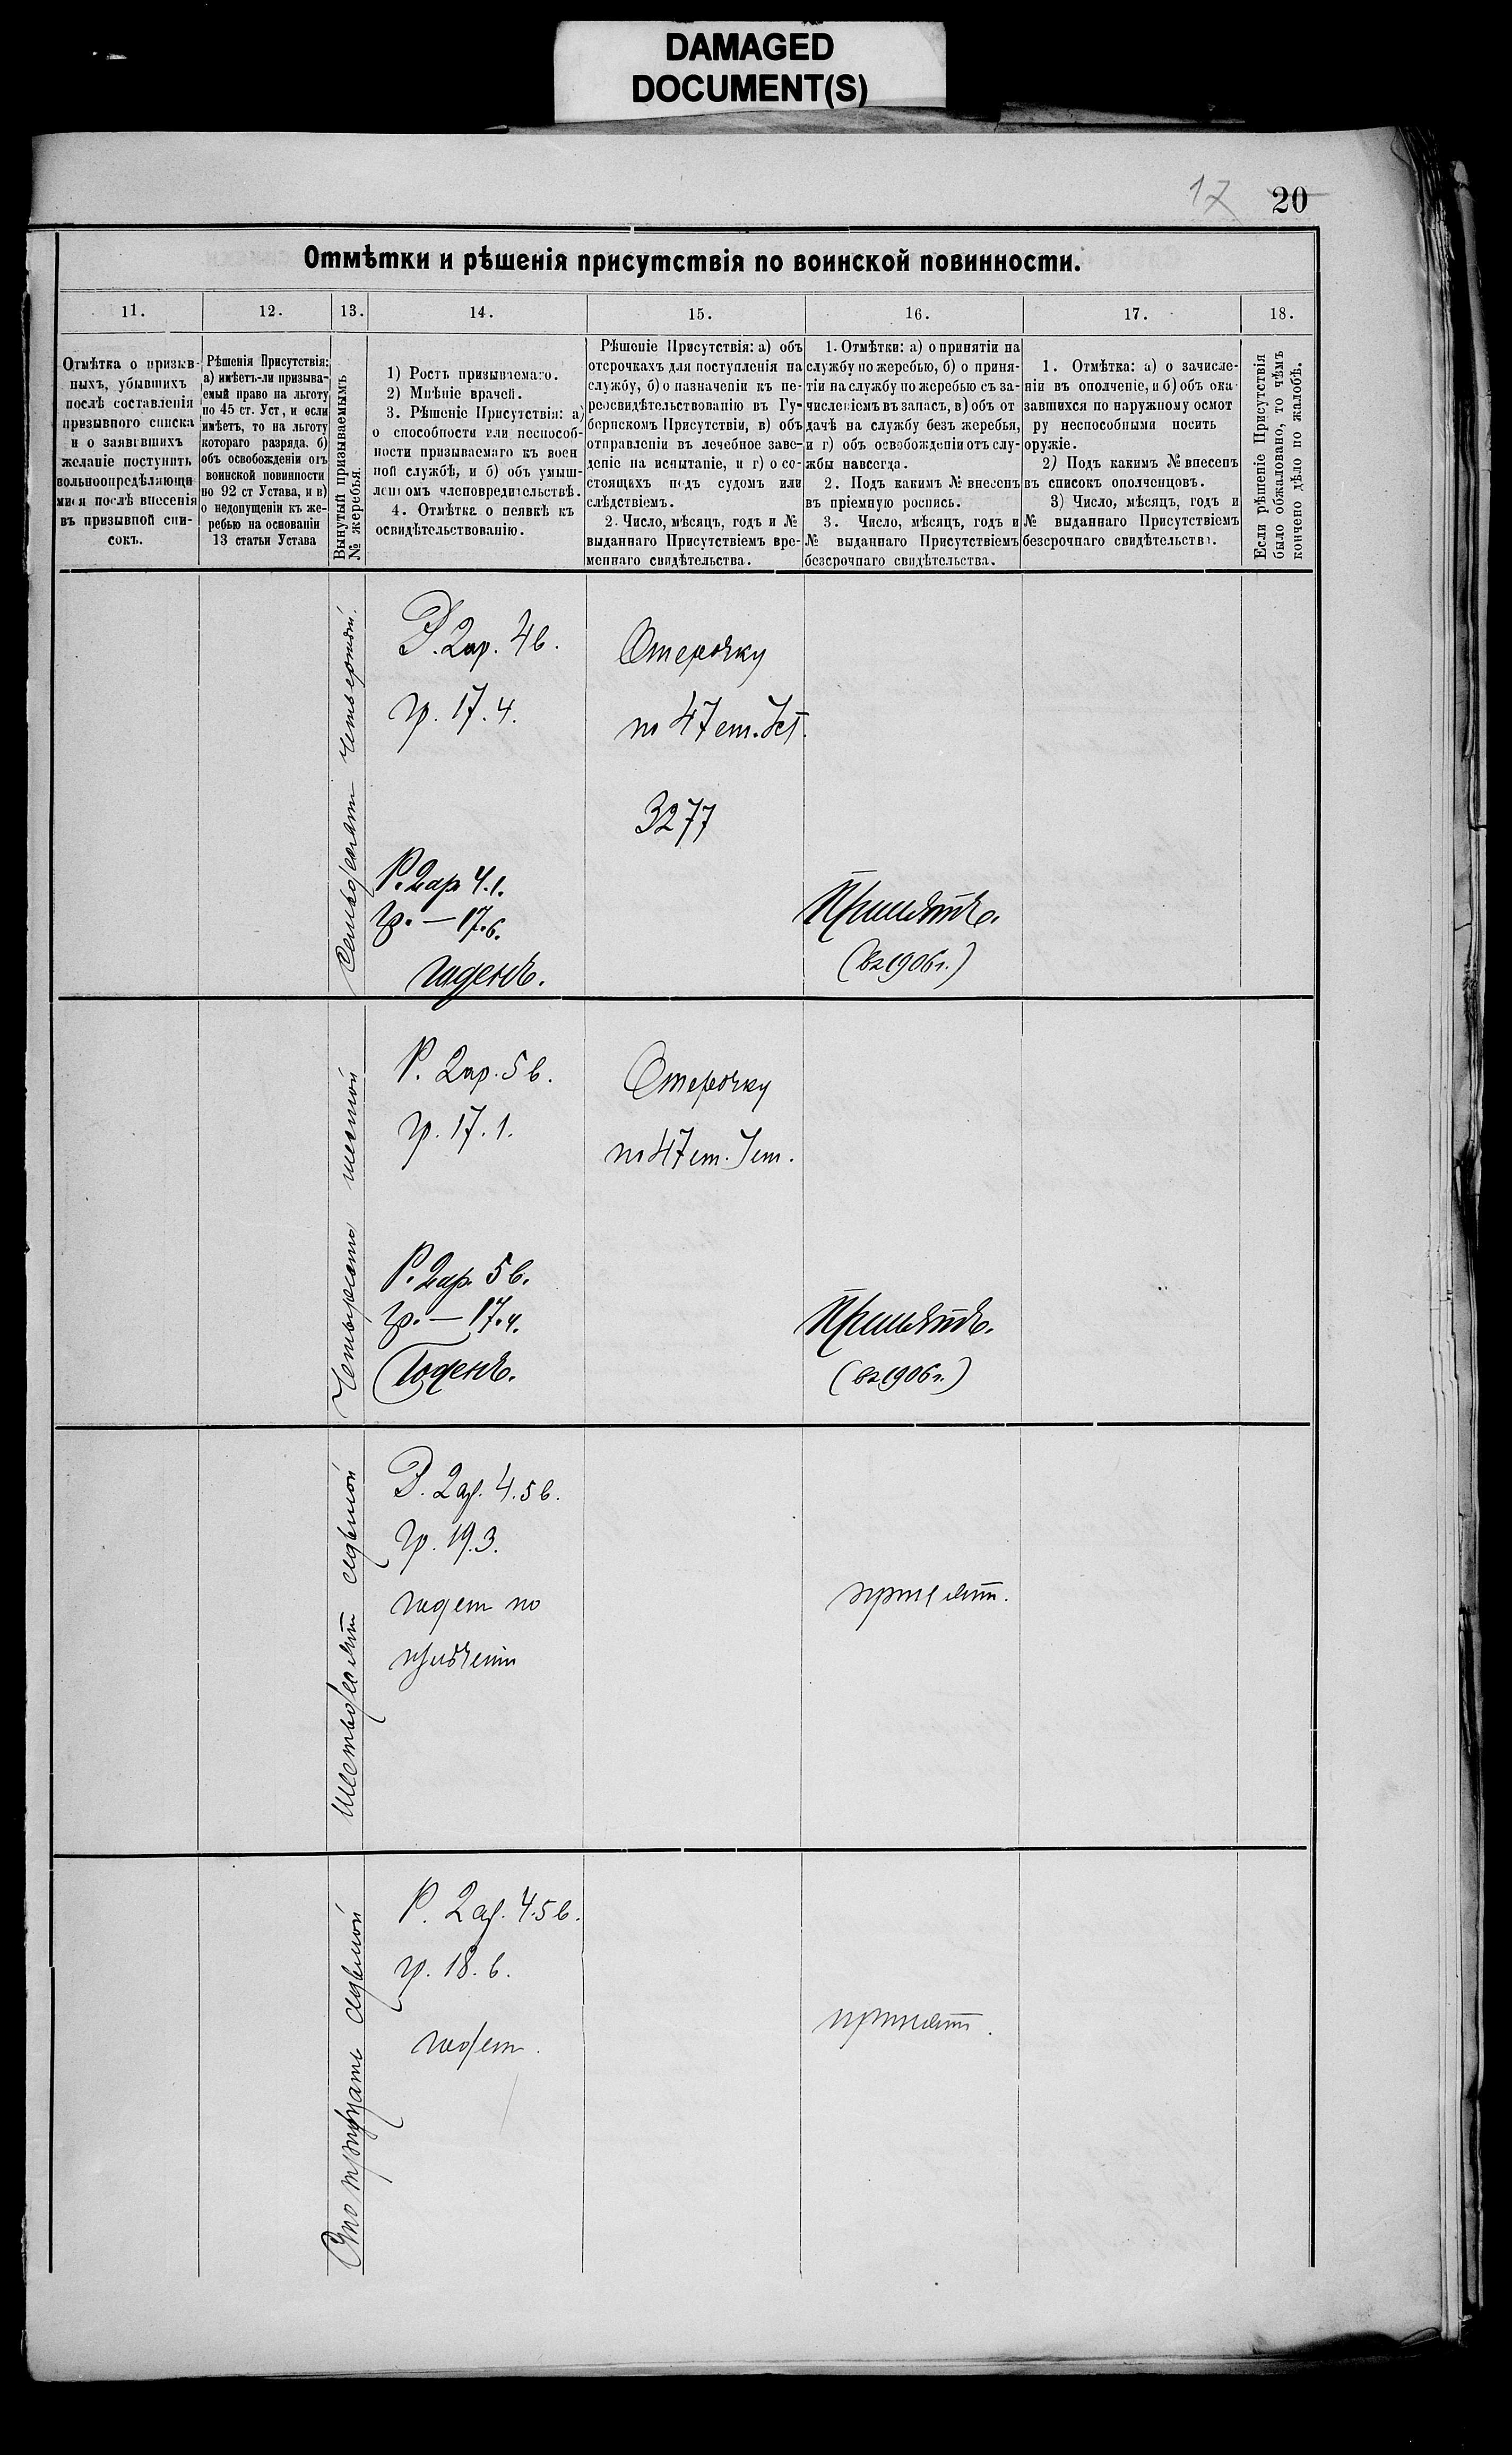 DAMAGED
DOCUMENT(S)
17 20
Отмѣтки и рѣшенія присутствія по воинской повинности.
11. 12. 13. 14. 15. 16. 17. 18.
Отмѣтка о призыв-
ныхъ, убывшихъ
послѣ составленія
призывного списка
и о заявившихъ
желаніе поступить
вольноопредѣляющи
мися послѣ внесенія
въ призывной спи-
сокъ.
Рѣшенія Присутствія:
а) имѣетъ-ли призыва-
емый право на льготу
по 45 ст. Уст, и если
имѣетъ, то на льготу
котораго разряда. б)
объ освобожденіи отъ
воинской повинности
по 92 ст Устава, и в)
о недопущеніи къ же-
ребью на основаніи
13 статьи Устава
Вынутый призываемымъ
№ жеребья.
1) Ростъ призываемаго.
2) Мнѣніе врачей.
3. Рѣшеніе Присутствія: а)
о способности или неспособ-
ности призываемаго къ воен
ной службѣ, и б) объ умыш-
леномъ членовредительствѣ.
4. Отмѣтка о неявкѣ къ
освидѣтельствованію.
Рѣшеніе Присутствія: а) объ
отсрочкахъ для поступленія на
службу, б) о назначеніи къ пе-
реосвидѣтельствованію въ Гу-
бернскомъ Присутствіи, в) объ
отправленіи въ лечебное заве-
деніе на испытаніе, и г) о со-
стоящихъ подъ судомъ или
слѣдствіемъ.
2. Число, мѣсяцъ, годъ и №
выданнаго Присутствіемъ вре-
меннаго свидѣтельства.
1. Отмѣтки: а) о принятіи на
службу по жеребью, б) о приня-
тіи на службу по жеребью съ за-
численіемъ въ запасъ, в) объ от
дачѣ на службу безъ жеребья,
и г) объ освобожденіи отъ слу-
жбы навсегда.
2. Подъ какимъ № внесенъ
въ пріемную роспись.
3. Число, мѣсяцъ, годъ и
№ выданнаго Присутствіемъ
безсрочнаго свидѣтельства.
1. Отмѣтка: а) о зачисле-
ніи въ ополченіе, и б) объ ока
завшихся по наружному осмот
ру неспособными носить
оружіе.
2) Подъ какимъ № внесенъ
въ списокъ ополченцовъ.
3) Число, мѣсяцъ, годъ и
№ выданнаго Присутствіемъ
безсрочнаго свидѣтельства.
Если рѣшеніе Присутствія
было обжаловано, то чѣмъ
кончено дѣло по жалобѣ.
Семьдесят четвертый.
Р. 2 ар. 4 в.
гр. 17. 4.
Отсрочку
по 47 ст. Уст.
3277
Р. 2 ар 4. 1.
гр. — 17. 6.
годенъ.
Принятъ.
(въ 1906 г.)
Четыреста шестой
Р. 2 ар. 5 в.
гр. 17. 1.
Отсрочку
по 47 ст. Уст.
Р. 2 ар 5 в.
гр. — 17. 4.
Годенъ.
Принятъ.
(въ 1906 г.)
Шестьдесят седьмой
Р. 2 ар. 4. 5 в.
гр. 19. 3.
годен по
принят.
Сто тридцать седьмой
Р. 2 ар. 4. 5 в.
гр. 18. 6.
годен.
принят.